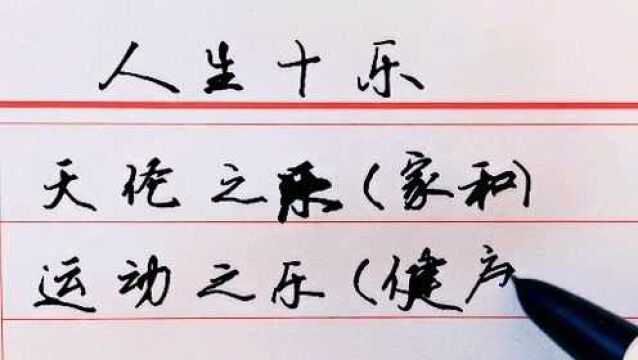 人生十乐
天伦之乐(家和)
运动之乐(健